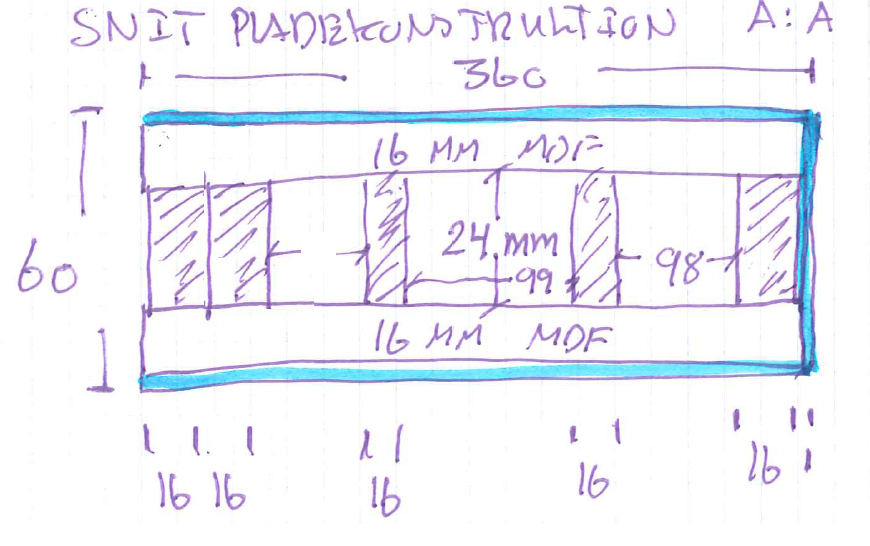 SNIT PLADEKONSTRUKTION A:A
360
16 MM MDF
60
24 mm
99
98
16 MM MDF
16 16 16 16 16